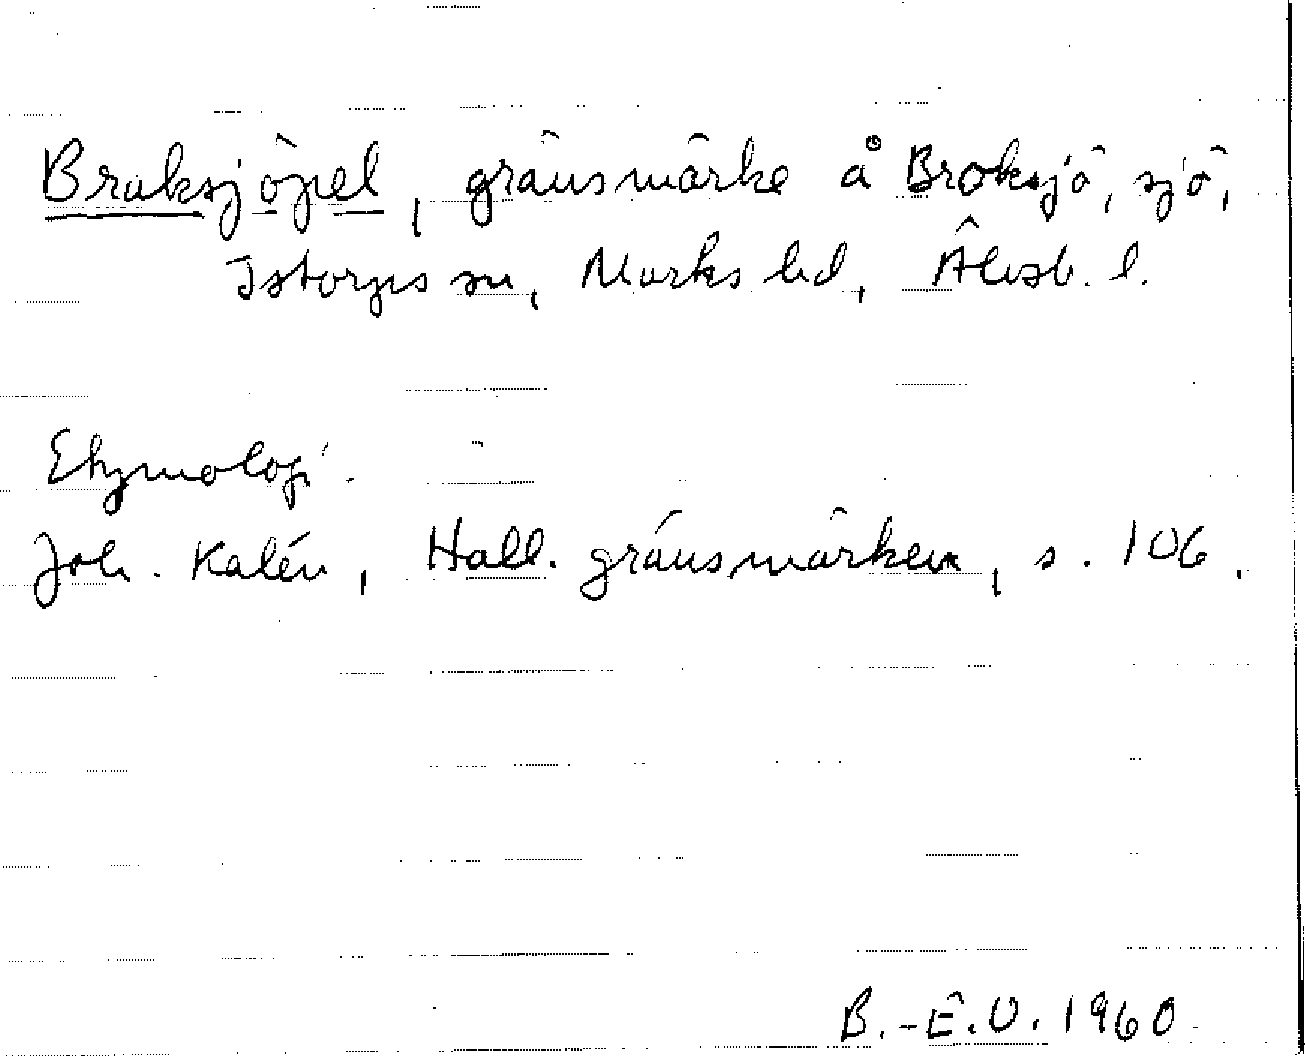 Braksjöpel, gränsmärke å Broksjö, sjö,
Istorps sn, Marks hd, Älvsb. l.
Etymologi.
Joh. Kalén, Hall. gränsmärken, s. 106.
B.-E.O. 1960